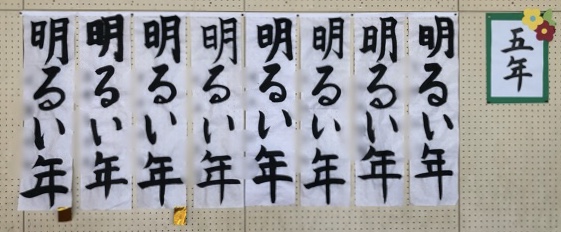 五年
明るい年
明るい年
明るい年
明るい年
明るい年
明るい年
明るい年
明るい年